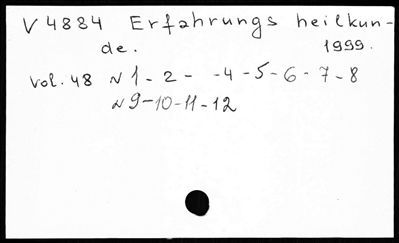 V 4884 Erfahrungs heilkun-
de. 1999.
vol. 48 N 1 - 2 - - 4 - 5 - 6 - 7 - 8
N 9 - 10 - 11 - 12